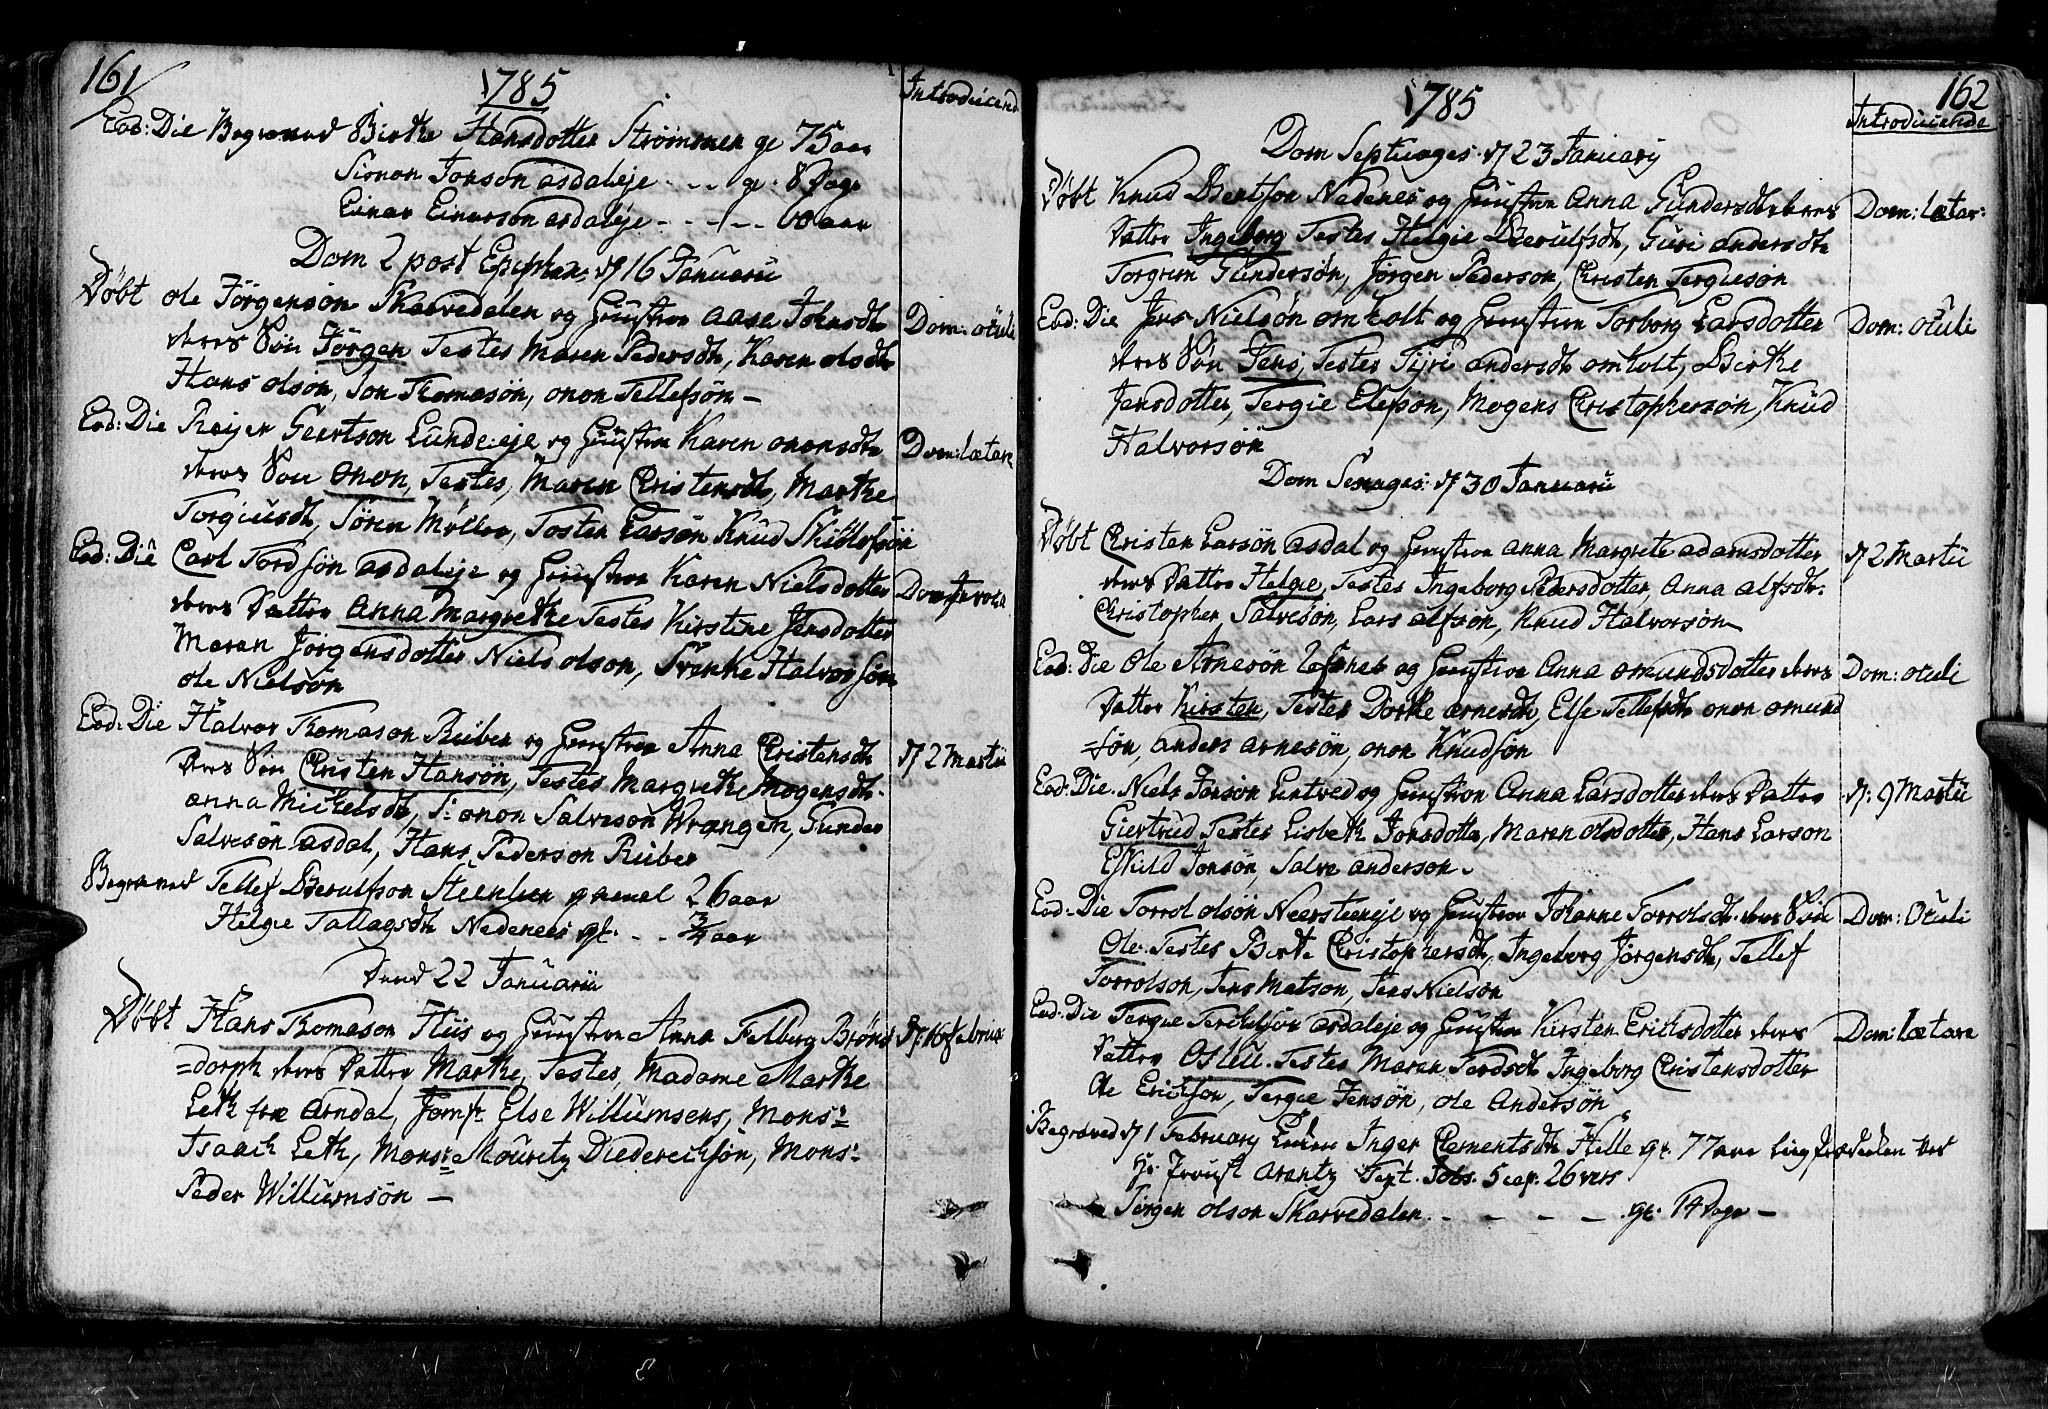 161
1785
Introducend
Eod: Die Begraved Birthe Hansdotter Strömmen gl 75 aar
Simon Jonsøn asdaleje - - - gl. 8 Dage
Einar Einarsøn asdaleje - - - - 60 aar
Dom 2 post Epiphan: d/ 16 Januarii
Døbt ole Jörgensøn Skarvedalen og Hustroe Aase Johnsdtr Dom: oculi
deres Søn Jörgen Testes Maren Pedersdtr, Karen olsdtr
Hans olsøn, Jon Thomasøn, onon Tellefsøn -
Eod: Die Reijer Geertsøn Lunde-eje og Hustroe Karen ononsdtr Dom: lætare
deres Søn onon, Testes, Maren Christensdtr, Marthe
Torgiusdtr, Sören Møller, Tosten Larsøn Knud
Eod: Die Carl Tordsøn asdaleje og Hustroe Karen Nielsdotter
deres Datter Anna Margrethe Testes Kirstine Jensdotter
Maren Jörgensdotter Niels olsøn, Svenke Halvorsøn
ole Nielsøn
Eod: Die Halvor Thomasøn Riiber og Hustroe Anna Christensdtr d/ 2 Martii
deres Søn Christen Hansøn, Testes Margrethe Mogensdtr
anna Michelsdtr, S: onon Salvesøn Wrangen, Gunder
Salvesøn asdal, Hans Pedersøn Riiber
Begraved Tellef Berulfsøn gammel 26 aar
Helge Tallagsdtr Nedenes gl. - - 3/4 aar
Dend 22 Januarii
Døbt Hans Thomasøn Hiis og Hustroe Anna Felberg Brøns d/ 16 februar
=dorph deres Datter Marthe, Testes, Madame Marthe
Leth fra Arndal, Jomfr. Else Willumsens, Mons:
Isaach Leth, Monsr: Mouritz Diederichsøn, Mons:
Peder Willumsøn -
162
1785
Introducende
Dom Septuages: d/ 23 Januarij
Døbt Knud Bentsøn Nedenes og Hustroe Anna Gundersdtr deres Dom: lætar:
Datter Ingeborg Testes Helgie Berulfsdtr, Guri andersdtr
Torgrim Gundersøn, Jörgen Pedersøn, Christen Tergiesøn
Eod: Die Jens Nielsøn omholt og Hustroe Torborg Larsdotter Dom: oculi
deres Søn Jens, Testes Sijri andersdtr omholt, Birthe
Jensdotter, Tergie Elefsøn, Mogens Christophersøn, Knud
Halvorsøn
Dom Sexages: d/ 30 Januarii
Døbt Christen Larsøn asdal og Hustroe Anna Margrete adamsdotter d/ 2 Martii
deres Datter Helgie, Testes Ingeborg Pedersdotter, Anna alfsdtr.
Christopher Salvesøn, Lars alfsøn, Knud Halvorsøn
Eod: Die Ole Arnesøn og Hustroe Anna omundsdotter deres Dom: oculi
Datter Kirsten, Testes Dorthe arnesdtr, Else Tellefsdtr onon omund
=søn, anders arnesøn, onon Knudsøn
Eod: Die. Niels Jonsøn Lintved og Hustroe Anna Larsdotter deres Datter d/: 9 Martii
Giertrud Testes Lisbeth Jonsdotter, Maren olsdotter, Hans Larsøn
Eskild Jonsøn, Salve andersøn.
Eod: Die Torrol olsøn Neersteeneje og Hustroe Johanne Torrolsdtr. deres Søn Dom: Oculi
Ole. Testes Birte Christophersdtr, Ingeborg Jörgensdtr, Tellef
Torrolsøn, Jens Matsøn, Jens Nielsøn
Eod: Die Tergie Terchelsøn asdaleje og Hustroe Kirsten Erichsdotter deres Dom: lætare
Datter Testes Maren Tordsdtr Ingeborg Christensdotter
ole Erichsøn, Tergie Jensøn, ole Andersøn
Begraved d/ 1 February Enken Inger Clementsdtr Helle gl. 77 aar Liigprædiken ved
Hr. Provst Arentz Text. Jobs. 5 cap. 26 vers
Jörgen olsøn Skarvedalen. - - - - gl. 14 Dage -